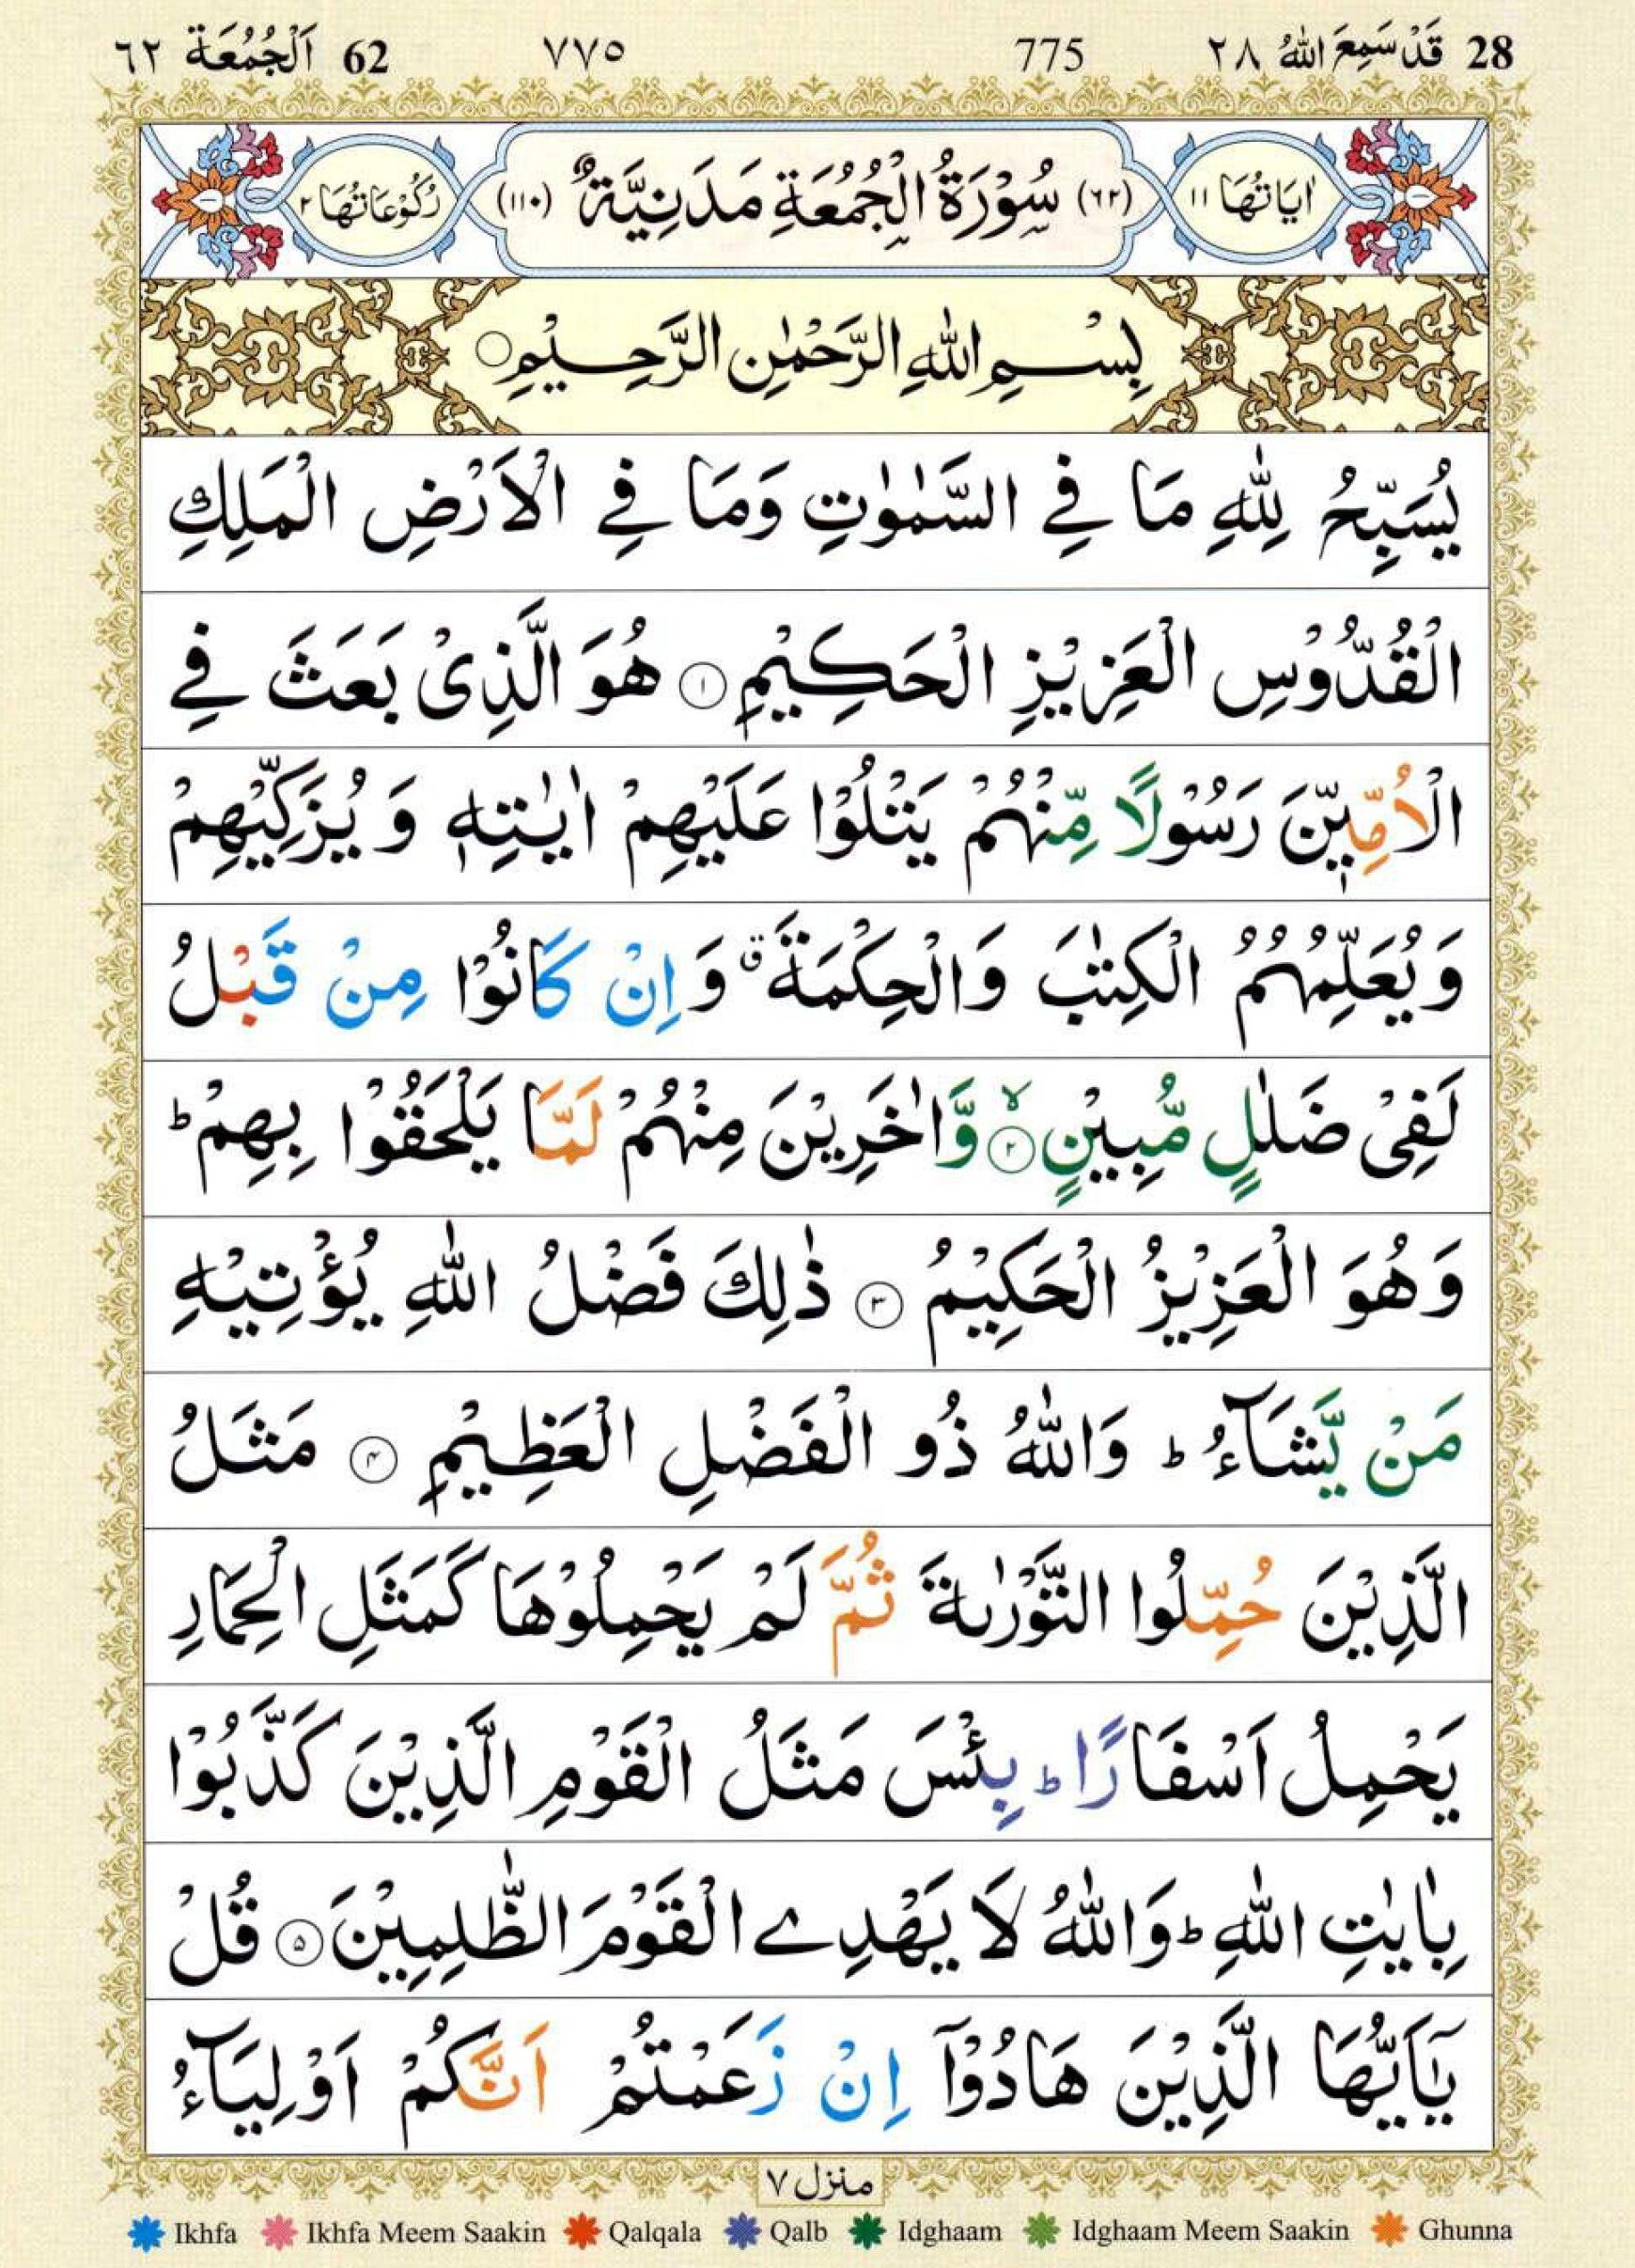 28 قَدْ سَمِعَ اللّٰهُ ٢٨ 775 ٧٧٥ 62 اَلْجُمُعَة ٦٢
اٰيَاتُهَا ١١ (٦٢) سُوْرَةُ الْجُمُعَةِ مَدَنِيَّةٌ (١١٠) رُكُوْعَاتُهَا ٢
بِسْمِ اللّٰهِ الرَّحْمٰنِ الرَّحِيْمِ
يُسَبِّحُ لِلّٰهِ مَا فِي السَّمٰوٰتِ وَمَا فِي الْاَرْضِ الْمَلِكِ
الْقُدُّوْسِ الْعَزِيْزِ الْحَكِيْمِ ١ هُوَ الَّذِيْ بَعَثَ فِي
الْاُمِّيّٖنَ رَسُوْلًا مِّنْهُمْ يَتْلُوْا عَلَيْهِمْ اٰيٰتِهٖ وَ يُزَكِّيْهِمْ
وَيُعَلِّمُهُمُ الْكِتٰبَ وَالْحِكْمَةَ ۗ وَ اِنْ كَانُوْا مِنْ قَبْلُ
لَفِيْ ضَلٰلٍ مُّبِيْنٍ ۙ ٢ وَّاٰخَرِيْنَ مِنْهُمْ لَمَّا يَلْحَقُوْا بِهِمْ ؕ
وَهُوَ الْعَزِيْزُ الْحَكِيْمُ ٣ ذٰلِكَ فَضْلُ اللّٰهِ يُؤْتِيْهِ
مَنْ يَّشَآءُ ؕ وَاللّٰهُ ذُو الْفَضْلِ الْعَظِيْمِ ٤ مَثَلُ
الَّذِيْنَ حُمِّلُوا التَّوْرٰىةَ ثُمَّ لَمْ يَحْمِلُوْهَا كَمَثَلِ الْحِمَارِ
يَحْمِلُ اَسْفَارًا ؕ بِئْسَ مَثَلُ الْقَوْمِ الَّذِيْنَ كَذَّبُوْا
بِاٰيٰتِ اللّٰهِ ؕ وَاللّٰهُ لَا يَهْدِے الْقَوْمَ الظّٰلِمِيْنَ ٥ قُلْ
يٰۤاَيُّهَا الَّذِيْنَ هَادُوْۤا اِنْ زَعَمْتُمْ اَنَّكُمْ اَوْلِيَآءُ
منزل ٧
Ikhfa Ikhfa Meem Saakin Qalqala Qalb Idghaam Idghaam Meem Saakin Ghunna